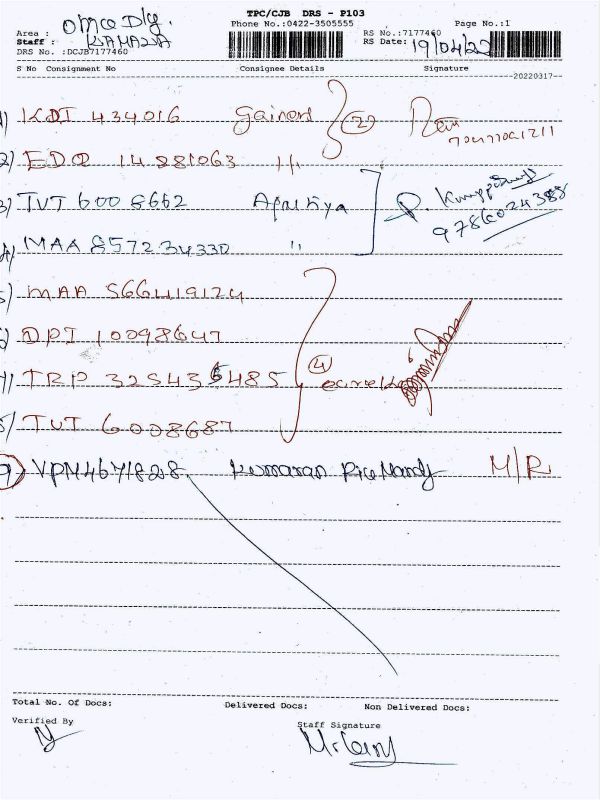 TPC/CJB DRS - P103
Phone No.:0422-3505555 Page No.:1
Area : Dly.
Staff :
DRS No. :DCJB7177460
RS No.:7177460
RS Date: 19/04/22
S No Consignment No Consignee Details Signature
--20220317--
1) KDI 434016 Gainers (2)
2) EDQ 14881063 11
3) TUT 6008662
P. 9786024388
4) MAA 857234330 "
5) MAA 566419124
6) DPI 10098647
7) TRP 325435485 (4)
8) TUT 6008687
9) VPM4671828 Kumaran M/R
Total No. Of Docs: Delivered Docs: Non Delivered Docs:
Verified By Staff Signature